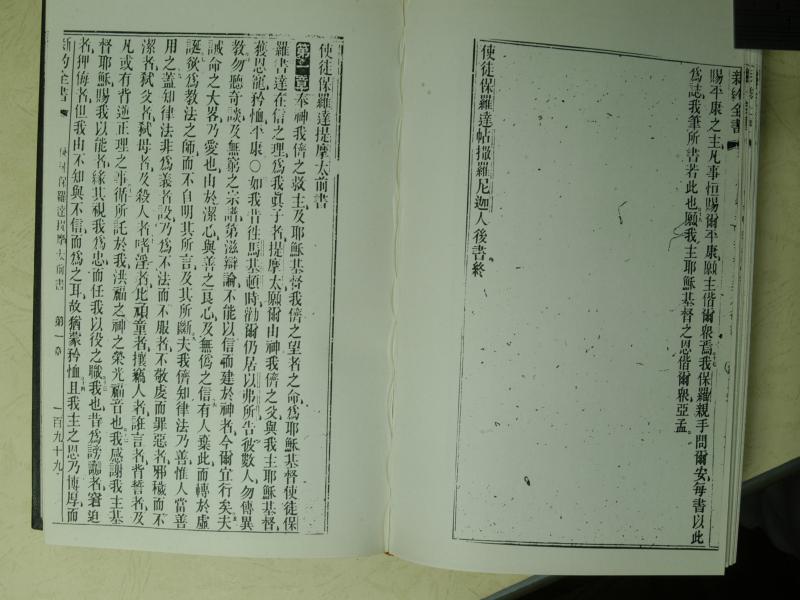 新約全書
賜平康之主凡事恒賜爾平康願主偕爾衆焉我保羅親手問爾安每書以此
爲誌我筆所書若此也願我主耶穌基督之恩偕爾衆亞孟
使徒保羅達帖撒羅尼迦人後書終
使徒保羅達提摩太前書
第一章奉神我儕之救主及耶穌基督我儕之望者之命爲耶穌基督使徒保
羅書達在信之理爲我眞子者提摩太願爾由神我儕之父與我主耶穌基督
獲恩寵矜恤平康〇如我昔往馬基頓時勸爾仍居以弗所告彼數人勿傳異
教勿聽奇談及無窮之宗譜第滋辯論不能以信而建於神者今爾宜行矣夫
誡命之大畧乃愛也由於潔心與善之良心及無僞之信有人棄此而轉於虛
誕欲爲教法之師而不自明其所言及其所斷夫我儕知律法乃善惟人當善
用之蓋知律法非爲義者設乃爲不法而不服者不敬虔而罪惡者邪穢而不
潔者弑父者弑母者及殺人者嗜淫者比頑童者攘竊人者誑言者背誓者及
凡或有背逆正理之事循所託於我洪福之神之榮光福音也我感謝我主基
督耶穌賜我以能者緣其視我爲忠而任我以役之職我也昔爲謗讟者窘迫
者押侮者但我由不知與不信而爲之耳故猶蒙矜恤且我主之恩乃博厚而
新約全書 使徒保羅達提摩太前書 第一章 一百九十九